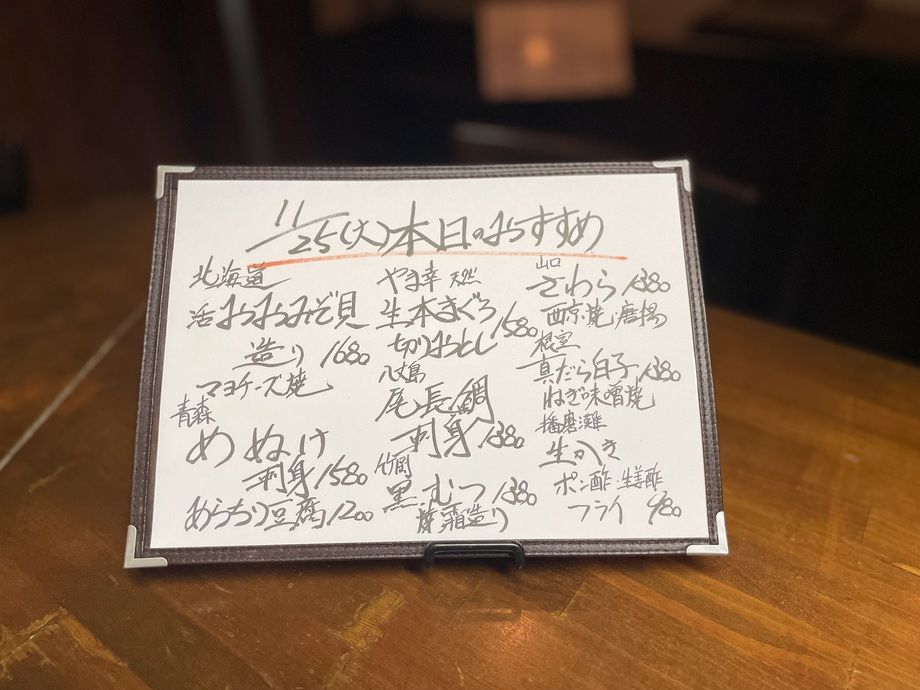 11/25(火)本日のおすすめ
北海道
活おおみぞ貝
造り 1680
マヨチーズ焼
青森
めぬけ
刺身 1580
あらちり豆腐 1200
やま幸 天然
生本まぐろ
切りおとし 1580
八丈島
尾長鯛
刺身 1380
竹岡
黒むつ 1380
焼霜造り
山口
さわら 1380
西京焼・唐揚
根室
真だら白子 1380
ねぎ味噌焼
播磨灘
生かき
ポン酢・生姜酢
フライ 980